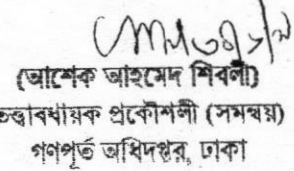 (আশেক আহমেদ শিবলী)
তত্ত্বাবধায়ক প্রকৌশলী (সমন্বয়)
গণপূর্ত অধিদপ্তর, ঢাকা